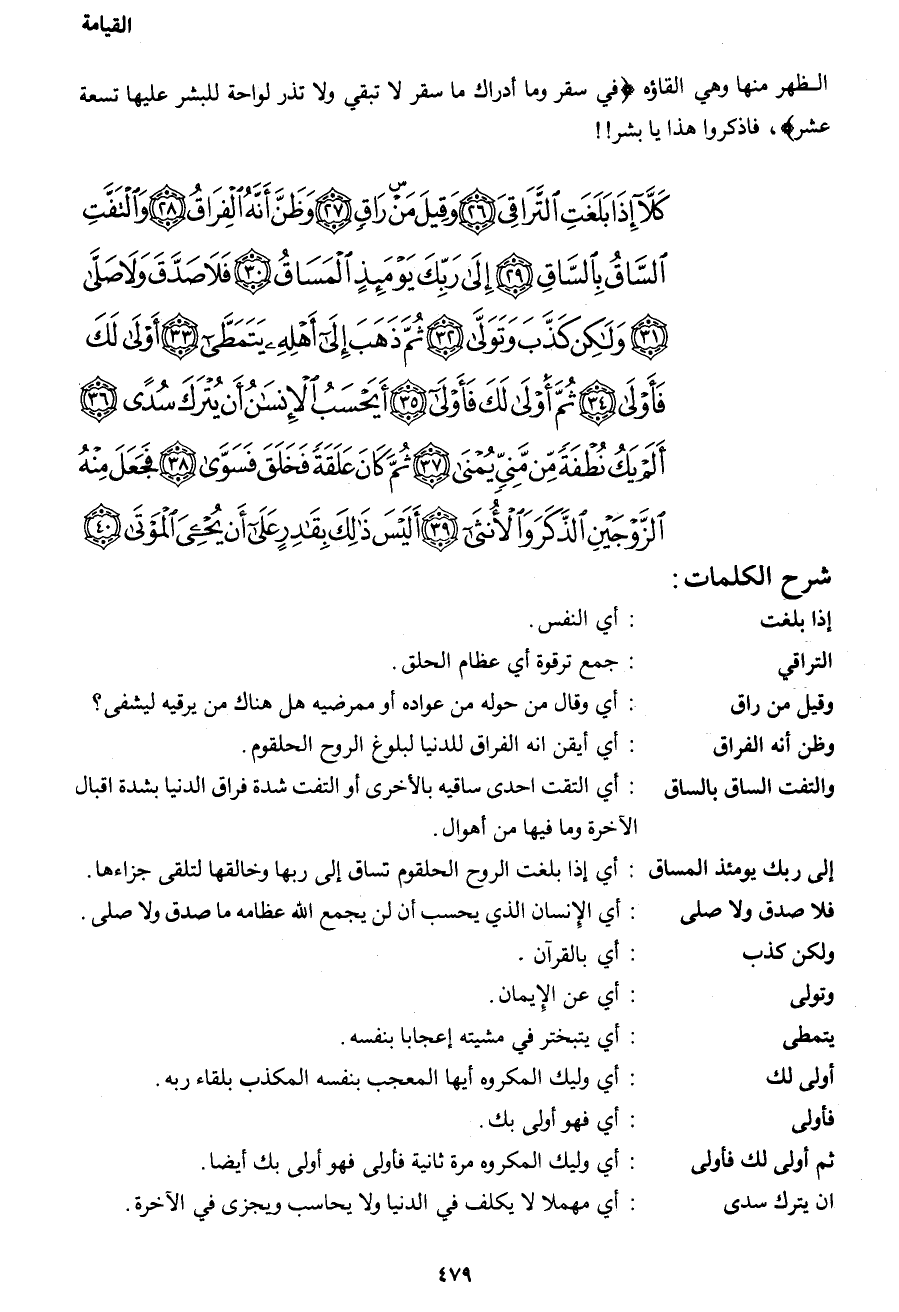 القيامة
الـظهر منها وهي القاؤه ﴿في سقر وما أدراك ما سقر لا تبقي ولا تذر لواحة للبشر عليها تسعة
عشر﴾، فاذكروا هذا يا بشر!!
كَلَّآ إِذَا بَلَغَتِ ٱلتَّرَاقِيَ ٢٦ وَقِيلَ مَنْۜ رَاقٍ ٢٧ وَظَنَّ أَنَّهُ ٱلْفِرَاقُ ٢٨ وَٱلْتَفَّتِ
ٱلسَّاقُ بِٱلسَّاقِ ٢٩ إِلَىٰ رَبِّكَ يَوْمَئِذٍ ٱلْمَسَاقُ ٣٠ فَلَا صَدَّقَ وَلَا صَلَّىٰ
٣١ وَلَٰكِن كَذَّبَ وَتَوَلَّىٰ ٣٢ ثُمَّ ذَهَبَ إِلَىٰٓ أَهْلِهِۦ يَتَمَطَّىٰٓ ٣٣ أَوْلَىٰ لَكَ
فَأَوْلَىٰ ٣٤ ثُمَّ أَوْلَىٰ لَكَ فَأَوْلَىٰٓ ٣٥ أَيَحْسَبُ ٱلْإِنسَٰنُ أَن يُتْرَكَ سُدًى ٣٦
أَلَمْ يَكُ نُطْفَةً مِّن مَّنِيٍّ يُمْنَىٰ ٣٧ ثُمَّ كَانَ عَلَقَةً فَخَلَقَ فَسَوَّىٰ ٣٨ فَجَعَلَ مِنْهُ
ٱلزَّوْجَيْنِ ٱلذَّكَرَ وَٱلْأُنثَىٰٓ ٣٩ أَلَيْسَ ذَٰلِكَ بِقَٰدِرٍ عَلَىٰٓ أَن يُحْـِۧىَ ٱلْمَوْتَىٰ ٤٠
شرح الكلمات :
إذا بلغت : أي النفس .
التراقي : جمع ترقوة أي عظام الحلق .
وقيل من راق : أي وقال من حوله من عواده أو ممرضيه هل هناك من يرقيه ليشفى؟
وظن أنه الفراق : أي أيقن انه الفراق للدنيا لبلوغ الروح الحلقوم.
والتفت الساق بالساق : أي التقت احدى ساقيه بالأخرى أو التفت شدة فراق الدنيا بشدة اقبال
الآخرة وما فيها من أهوال.
إلى ربك يومئذ المساق : أي إذا بلغت الروح الحلقوم تساق إلى ربها وخالقها لتلقى جزاءها.
فلا صدق ولا صلى : أي الإنسان الذي يحسب أن لن يجمع الله عظامه ما صدق ولا صلى.
ولكن كذب : أي بالقرآن .
وتولى : أي عن الإيمان.
يتمطى : أي يتبختر في مشيته إعجابا بنفسه.
أولى لك : أي وليك المكروه أيها المعجب بنفسه المكذب بلقاء ربه.
فأولى : أي فهو أولى بك.
ثم أولى لك فأولى : أي وليك المكروه مرة ثانية فأولى فهو أولى بك أيضا.
ان يترك سدى : أي مهملا لا يكلف في الدنيا ولا يحاسب ويجزى في الآخرة.
٤٧٩